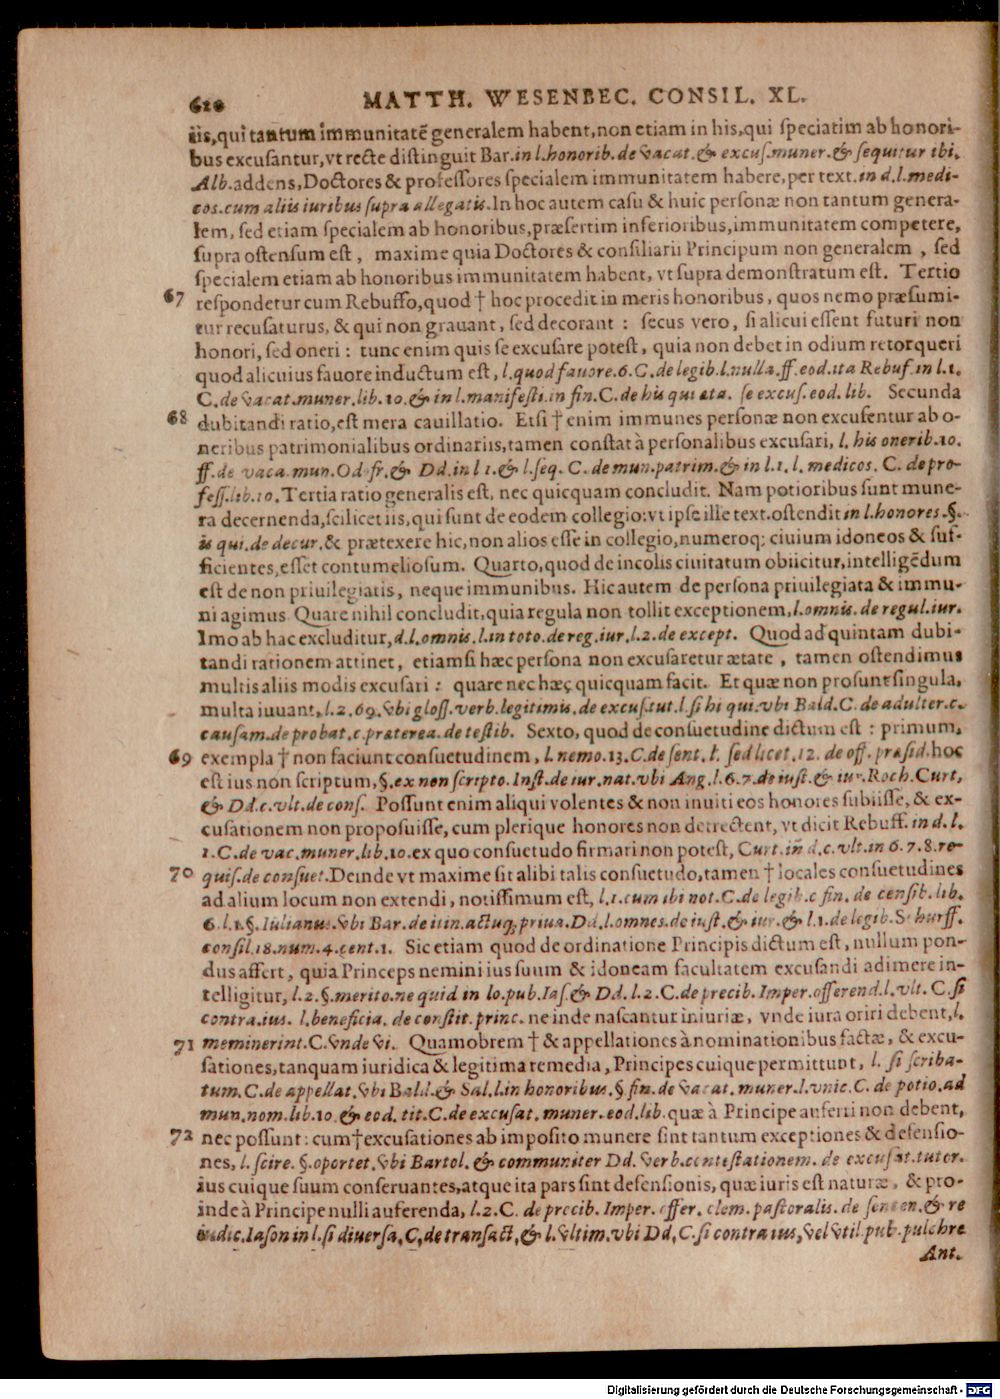 620 MATTH. WESENBEC. CONSIL. XL.
iis, qui tantum immunitatē generalem habent, non etiam in his, qui speciatim ab honori-
bus excusantur, vt recte distinguit Bar. in l. honorib. de vacat. & excus. muner. & sequitur ibi.
Alb. addens, Doctores & professores specialem immunitatem habere, per text. in d. l. medi-
cos. cum aliis iuribus supra allegatis. In hoc autem casu & huic personæ non tantum genera-
lem, sed etiam specialem ab honoribus, præsertim inferioribus, immunitatem competere,
supra ostensum est, maxime quia Doctores & consiliarii Principum non generalem, sed
specialem etiam ab honoribus immunitatem habent, vt supra demonstratum est. Tertio
67 respondetur cum Rebuffo, quod † hoc procedit in meris honoribus, quos nemo præsumi-
tur recusaturus, & qui non grauant, sed decorant: secus vero, si alicui essent futuri non
honori, sed oneri: tunc enim quis se excusare potest, quia non debet in odium retorqueri
quod alicuius fauore inductum est, l. quod fauore. 6. C. de legib. l. nulla. ff. eod. ita Rebuf. in l. 1.
C. de vacat. muner. lib. 10. & in l. manifesti. in fin. C. de his qui æta. se excus. eod. lib. Secunda
68 dubitandi ratio, est mera cauillatio. Etsi † enim immunes personæ non excusentur ab o-
neribus patrimonialibus ordinariis, tamen constat à personalibus excusari, l. his onerib. 10.
ff. de vaca. mun. Odofr. & Dd. in l. 1. & l. seq. C. de mun. patrim. & in l. 1. l. medicos. C. de pro-
fess. lib. 10. Tertia ratio generalis est, nec quicquam concludit. Nam potioribus sunt mune-
ra decernenda, scilicet iis, qui sunt de eodem collegio: vt ipse ille text. ostendit in l. honores. §.
is qui. de decur. & prætexere hic, non alios esse in collegio, numeroq; ciuium idoneos & suf-
ficientes, esset contumeliosum. Quarto, quod de incolis ciuitatum obiicitur, intelligēdum
est de non priuilegiatis, neque immunibus. Hic autem de persona priuilegiata & immu-
ni agimus Quare nihil concludit, quia regula non tollit exceptionem, l. omnis. de regul. iur.
Imo ab hac excluditur, d. l. omnis. l. in toto. de reg. iur. l. 2. de except. Quod ad quintam dubi-
tandi rationem attinet, etiamsi hæc persona non excusaretur ætate, tamen ostendimus
multis aliis modis excusari: quare nec hæc quicquam facit. Et quæ non prosunt singula,
multa iuuant, l. 2. 69. vbi gloss. verb. legitimis. de excus. tut. l. si hi qui. vbi Bald. C. de adulter. c.
causam. de probat. c. præterea. de testib. Sexto, quod de consuetudine dictum est: primum,
69 exempla † non faciunt consuetudinem, l. nemo. 13. C. de sent. l. sed licet. 12. de off. præsid. hoc
est ius non scriptum, §. ex non scripto. Inst. de iur. nat. vbi Ang. l. 6. 7. de iust. & iur. Roch. Curt.
& Dd. c. vlt. de cons. Possunt enim aliqui volentes & non inuiti eos honores subiisse, & ex-
cusationem non proposuisse, cum plerique honores non detrectent, vt dicit Rebuff. in d. l.
1. C. de vac. muner. lib. 10. ex quo consuetudo firmari non potest, Curt. in d. c. vlt. in 6. 7. 8. re-
70 quis. de consuet. Deinde vt maxime sit alibi talis consuetudo, tamen † locales consuetudines
ad alium locum non extendi, notissimum est, l. 1. cum ibi not. C. de legib. c fin. de censib. lib.
6. l. 1. §. Iulianus. vbi Bar. de itin. actuq; priua. Dd. l. omnes. de iust. & iur. & l. 1. de legib. Schurff.
consil. 18. num. 4. cent. 1. Sic etiam quod de ordinatione Principis dictum est, nullum pon-
dus affert, quia Princeps nemini ius suum & idoneam facultatem excusandi adimere in-
telligitur, l. 2. §. merito. ne quid in lo. pub. Ias. & Dd. l. 2. C. de precib. Imper. offerend. l. vlt. C. si
contra ius. l. beneficia. de constit. princ. ne inde nascantur iniuriæ, vnde iura oriri debent, l.
71 meminerint. C. vnde vi. Quamobrem † & appellationes à nominationibus factæ, & excu-
sationes, tanquam iuridica & legitima remedia, Principes cuique permittunt, l. si scriba-
tum. C. de appellat. vbi Bald. & Sal. l. in honoribus. § fin. de vacat. muner. l. vnic. C. de potio. ad
mun. nom. lib. 10. & eod. tit. C. de excusat. muner. eod. lib. quæ à Principe auferri non debent,
72 nec possunt: cum † excusationes ab imposito munere sint tantum exceptiones & defensio-
nes, l. scire. §. oportet. vbi Bartol. & communiter Dd. verb. contestationem. de excusat. tutor.
ius cuique suum conseruantes, atque ita pars sint defensionis, quæ iuris est naturæ, & pro-
inde à Principe nulli auferenda, l. 2. C. de precib. Imper. offer. clem. pastoralis. de senten. & re
iudic. Iason in l. si diuersa. C. de transact. & l. vltim. vbi Dd. C. si contra ius, vel vtil. pub. pulchre
Ant.
Digitalisierung gefördert durch die Deutsche Forschungsgemeinschaft - DFG